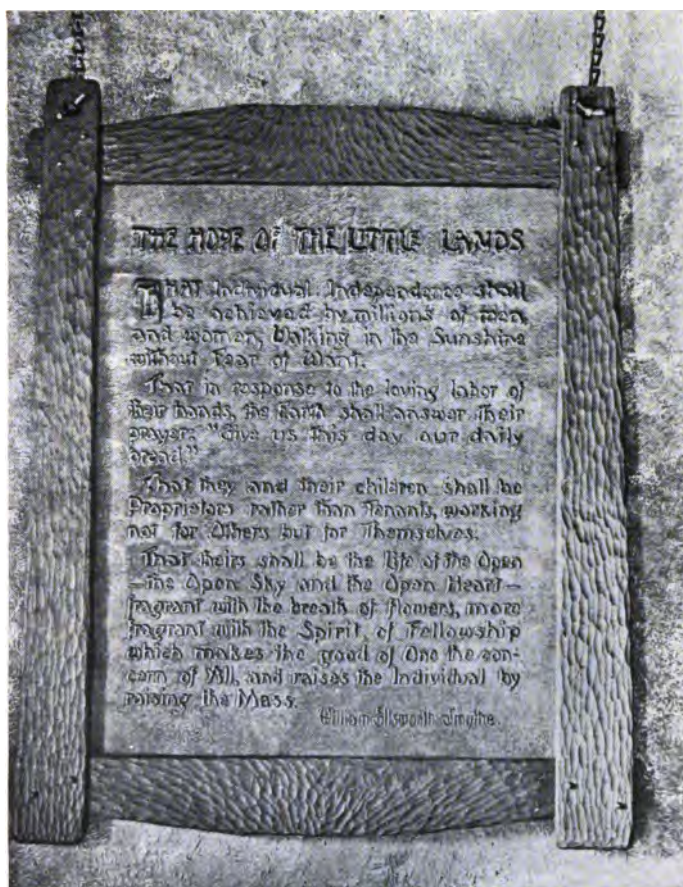 THE HOPE OF THE LITTLE LANDS
THAT Individual Independence shall
be achieved by millions of men,
and women, Walking in the Sunshine
without Fear of Want.
That in response to the loving labor of
their hands, the Earth shall answer Their
prayer: "Give us This day our daily
bread."
That they and their children shall be
Proprietors rather than Tenants, working
not for Others but for Themselves.
That theirs shall be the Life of the Open
—the Open Sky and the Open Heart—
fragrant with the breath of flowers, more
fragrant with the Spirit of Fellowship
which makes the good of One the con-
cern of All, and raises the Individual by
raising the Mass.
William Ellsworth Smythe.